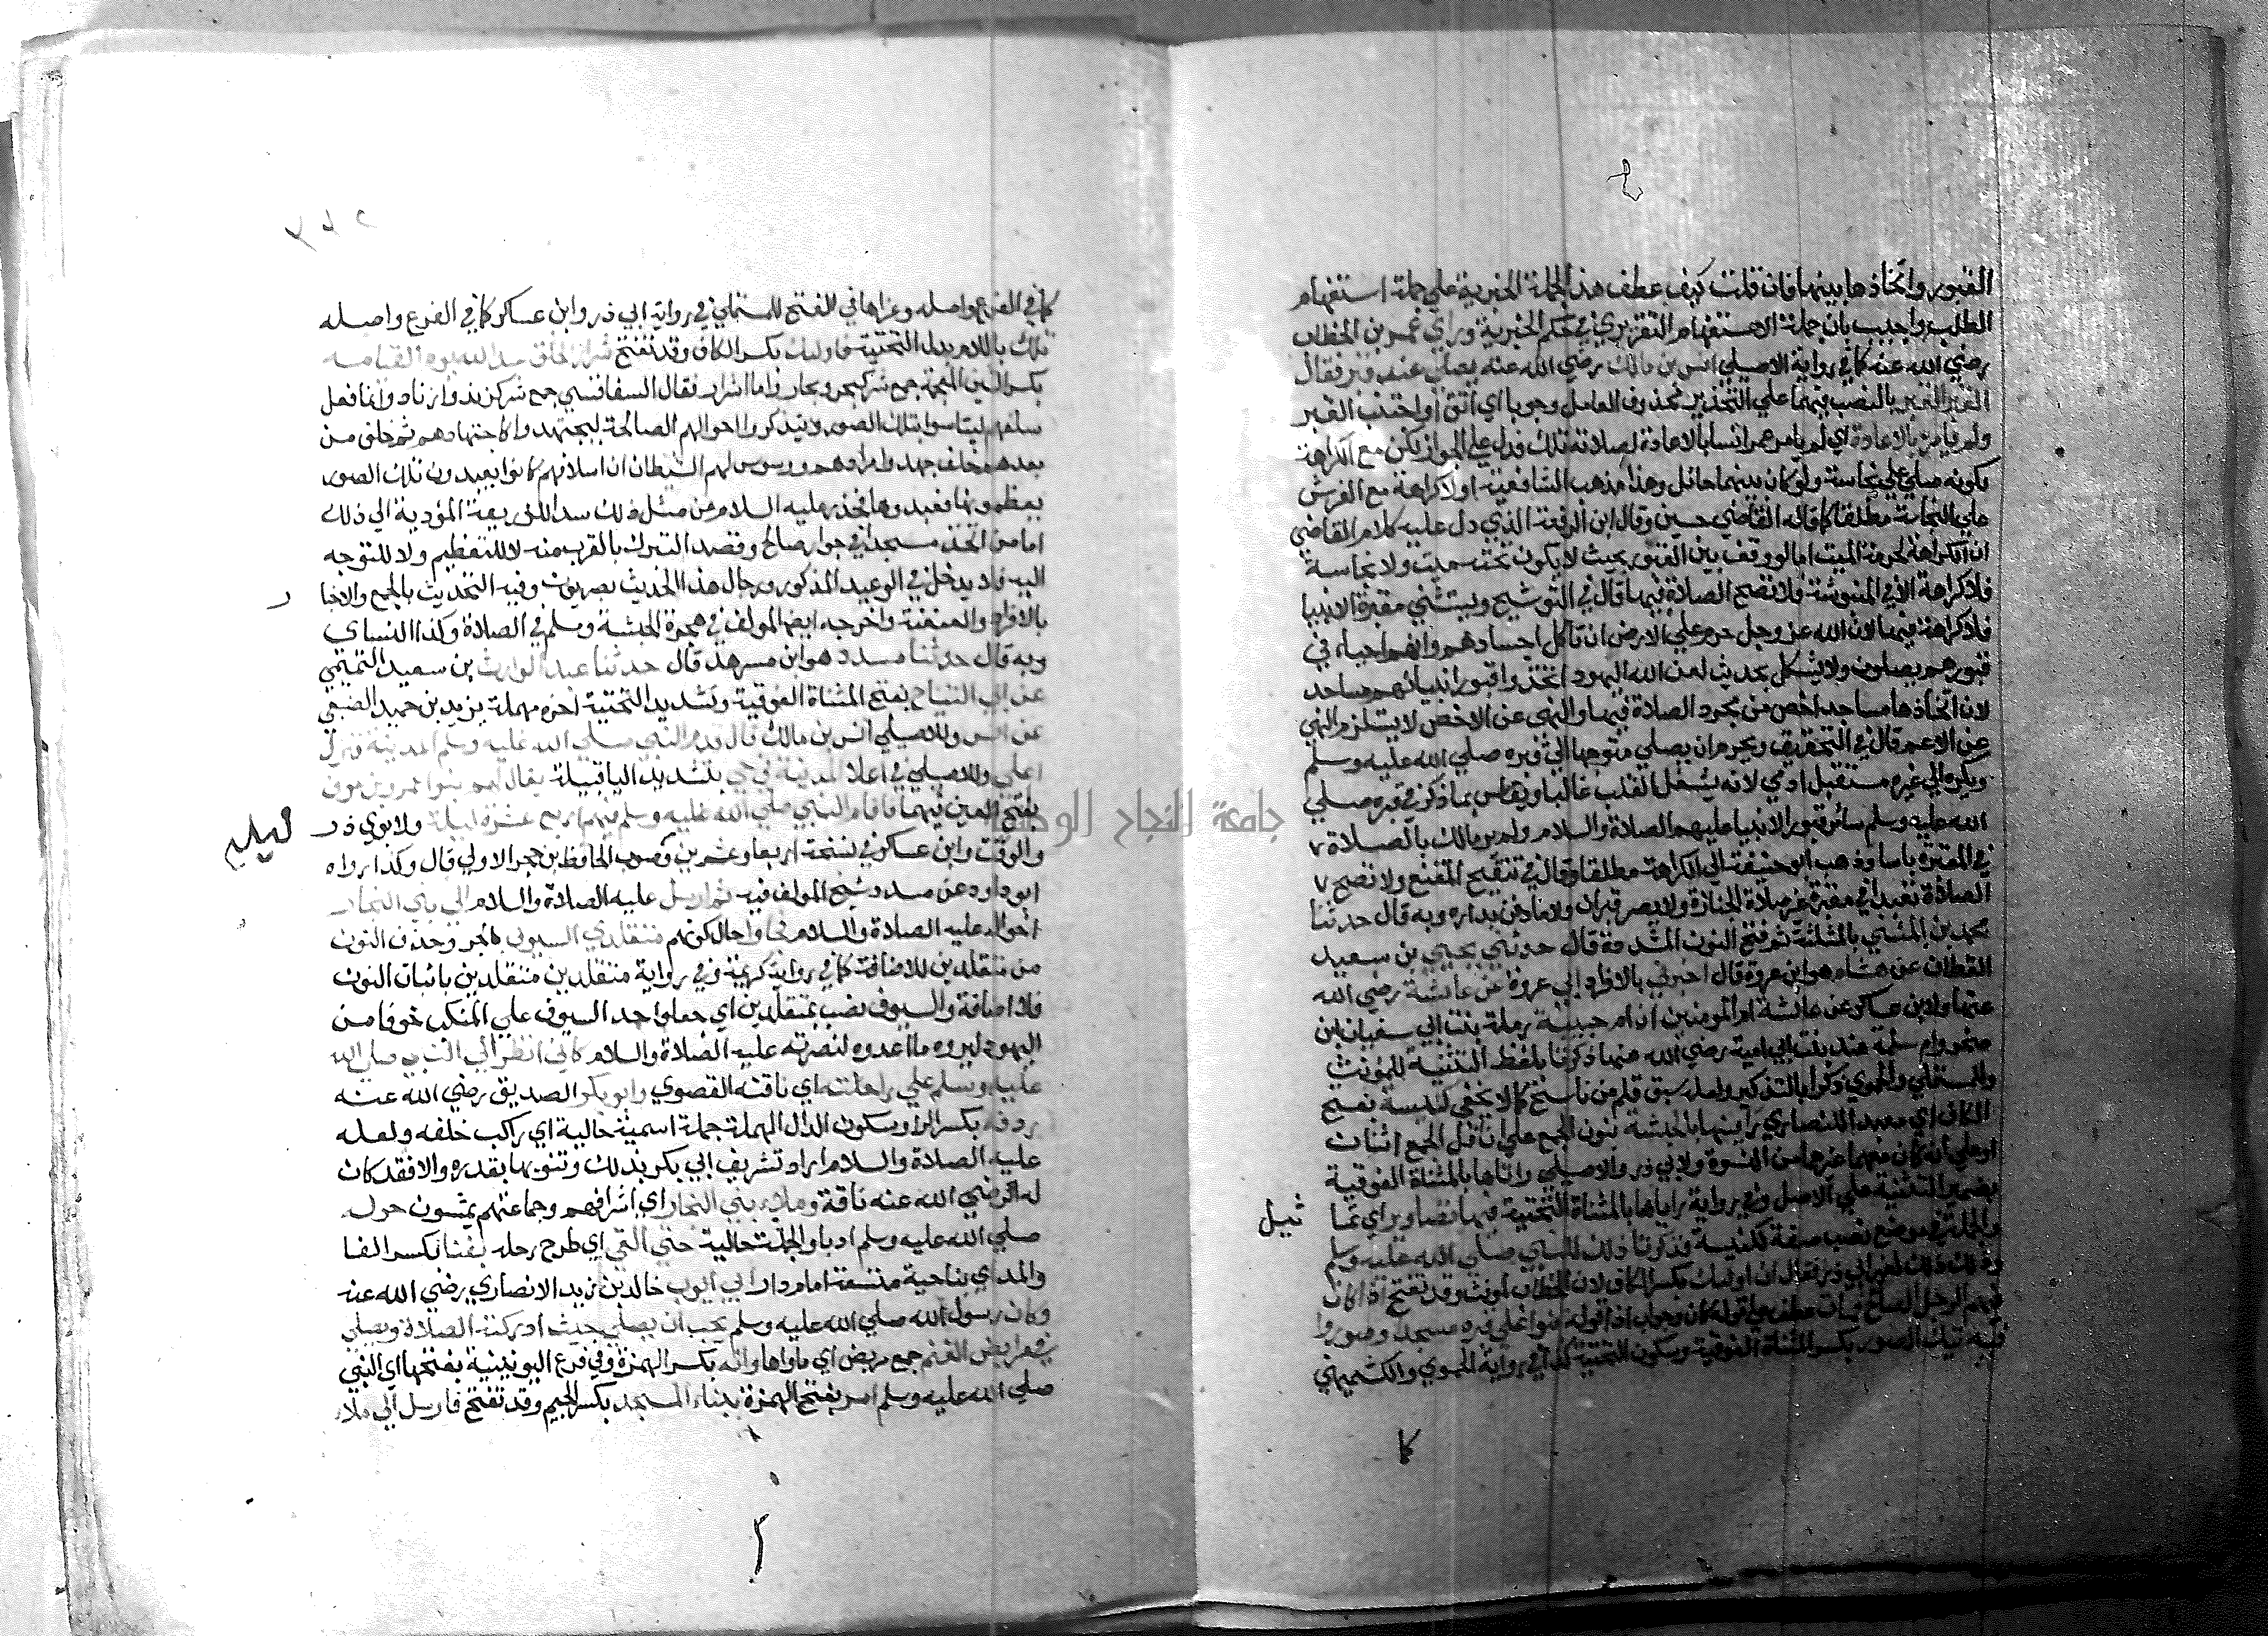 القبور واتخاذها بينها فان قلت كيف عطف هذه الجملة الخبرية علي جملة استفهام
الطلب واجيب بان جملة الاستفهام التقريري في حكم الخبرية وراي عمر بن الخطاب
رضي الله عنه كما في رواية الاصيلي انس بن مالك رضي الله عنه يصلي عند قبر فقال
القبر القبر بالنصب فيهما علي التحذير محذوف العامل وجوبا اي اتق او اجتنب القبر
ولم يامره بالاعادة اي لم يامر عمر انسا بالاعادة لصلاته تلك فدل علي الجواز لكن مع الكراهة
لكونه صلي علي نجاسة ولو كان بينهما حائل وهذا مذهب الشافعية او لا كراهة مع الفرش
علي النجاسة مطلقا كما قاله القاضي حسين وقال ابن الرفعة الذي دل عليه كلام القاضي
ان الكراهة لحرمة الميت اما لو وقف بين القبور بحيث لا يكون تحته ميت ولا نجاسة
فلا كراهة الا في المنبوشة فلا تصح الصلاة فيها قال في التوشيح ويستثني مقبرة الانبيا
فلا كراهة فيها لان الله عز وجل حرم علي الارض ان تاكل اجسادهم وانهم احياء في
قبورهم يصلون ولا يشكل بحديث لعن الله اليهود اتخذوا قبور انبيائهم مساجد
لان اتخاذها مساجد اخص من مجرد الصلاة فيها والنهي عن الاخص لا يستلزم النهي
عن الاعم قال في التحقيق ويحرم ان يصلي متوجها الي قبره صلي الله عليه وسلم
ويكره الي غيره مستقبل ادمي لانه يشغل القلب غالبا ويقاس بما ذكر في قبره صلي
الله عليه وسلم سائر قبور الانبيا عليهم الصلاة والسلام ولم ير مالك بالصلاة
في المقبرة باسا وذهب ابو حنيفة الي الكراهة مطلقا وقال في تنقيح المقنع ولا تصح
الصلاة تعبدا في مقبرة غير صلاة الجنازة ولا يضر قبران ولا ما دفن بداره وبه قال حدثنا
محمد بن المثني بالمثلثة ثم فتح النون المشددة قال حدثني يحيي بن سعيد
القطان عن هشام هو ابن عروة قال اخبرني بالافراد ابي عروة عن عائشة رضي الله
عنها ولابن عساكر عن عائشة ام المؤمنين ان ام حبيبة رملة بنت ابي سفيان ابن
صخر وام سلمة هند بنت ابي امية رضي الله عنهما ذكرتا بلفظ التثنية للمؤنث
وللمستملي والحموي ذكرا بالتذكير ولعله سبق قلم من ناسخ كما لا يخفي كنيسة بفتح
الكاف اي معبد للنصاري راينها بالحبشة بنون الجمع علي ان اقل الجمع اثنان
او علي انه كان معهما غيرهما من النسوة ولابي ذر والاصيلي راتاها بالمثناة الفوقية
بضمير التثنية علي الاصل وفي رواية راياها بالمثناة التحتية فيها تصاوير اي تما
ثيل
والجملة في موضع نصب صفة لكنيسة فذكرتا ذلك للنبي صلي الله عليه وسلم
فقال ان اولئك بكسر الكاف لان الخطاب لمونث وقد تفتح اذا كان
فيهم الرجل الصالح فمات عطف علي قوله كان وجواب اذا قوله بنوا علي قبره مسجدا وصوروا
فيه تيك الصور بكسر المثناة الفوقية وسكون التحتية كذا في رواية الحموي والكشميهني
كا
كما في الفرع واصله وعزاها في الفتح للمستملي في رواية ابي ذر وابن عساكر كما في الفرع واصله
تلك باللام بدل التحتية فاولئك بكسر الكاف وقد تفتح شرار الخلق عند الله يوم القيامة
بكسر الشين المعجمة جمع شر كبحر وبحار واما اشرار فقال السفاقسي جمع شر كزند وازناد وانما فعل
سلفهم ليتاسوا بتلك الصور ويتذكروا احوالهم الصالحة ليجتهدوا كاجتهادهم ثم خلف من
بعدهم خلف جهلوا مرادهم ووسوس لهم الشيطان ان اسلافهم كانوا يعبدون تلك الصور
يعظمونها فعبدوها فحذر عليه السلام عن مثل ذلك سدا للذريعة المؤدية الي ذلك
اما من اتخذ مسجدا في جوار صالح وقصد التبرك بالقرب منه لا للتعظيم ولا للتوجه
اليه فلا يدخل في الوعيد المذكور ورجال هذا الحديث بصريون وفيه التحديث بالجمع والاخبا
ر
بالافراد والعنعنة واخرجه ايضا المولف في هجرة الحبشة ومسلم في الصلاة وكذا النساي
وبه قال حدثنا مسدد هو ابن مسرهد قال حدثنا عبد الوارث بن سعيد التميمي
عن ابي التياح بفتح المثناة الفوقية وتشديد التحتية اخره مهملة يزيد بن حميد الضبعي
عن انس وللاصيلي انس بن مالك قال قدم النبي صلي الله عليه وسلم المدينة فنزل
اعلي وللاصيلي في اعلا المدينة في حي بتشديد اليا قبيلة يقال لهم بنوا عمرو بن عوف
بفتح العين فيهما فاقام النبي صلي الله عليه وسلم فيهم اربع عشرة ليلة ولابوي ذر
والوقت وابن عساكر في نسخة اربعا وعشرين وصوب الحافظ بن حجر الاولي قال وكذا رواه
ابو داود عن مسدد شيخ المولف فيه ثم ارسل عليه الصلاة والسلام الي بني النجار
اخواله عليه الصلاة والسلام فجاوا حال كونهم متقلدي السيوف بالجر وحذف النون
من متقلدين للاضافة كما في رواية كريمة وفي رواية متقلدين متقلدين باثبات النون
فلا اضافة والسيوف نصب بمتقلدين اي جعلوا حد السيوف علي المنكب خوفا من
اليهود ليروه ما اعدوه لنصرته عليه الصلاة والسلام كاني انظر الي النبي صلي الله
عليه وسلم علي راحلته اي ناقته القصوي وابو بكر الصديق رضي الله عنه
ردفه بكسر الرا وسكون الدال المهملة جملة اسمية حالية اي راكب خلفه ولعله
عليه الصلاة والسلام اراد تشريف ابي بكر بذلك وتنويها بقدره والا فقد كان
له رضي الله عنه ناقة وملاء بني النجار اي اشرافهم وجماعتهم يمشون حوله
صلي الله عليه وسلم ادبا والجملة حالية حتي القي اي طرح رحله بفنا بكسر الفا
والمد اي بناحية متسعة امام دار ابي ايوب خالد بن زيد الانصاري رضي الله عنه
وكان رسول الله صلي الله عليه وسلم يحب ان يصلي حيث ادركته الصلاة ويصلي
في مرابض الغنم جمع مربض اي ماواها وانه بكسر الهمزة وفي فرع اليونينية بفتحها اي النبي
صلي الله عليه وسلم امر بفتح الهمزة ببناء المسجد بكسر الجيم وقد تفتح فارسل الي ملاء
جامعة النجاح الوطنية